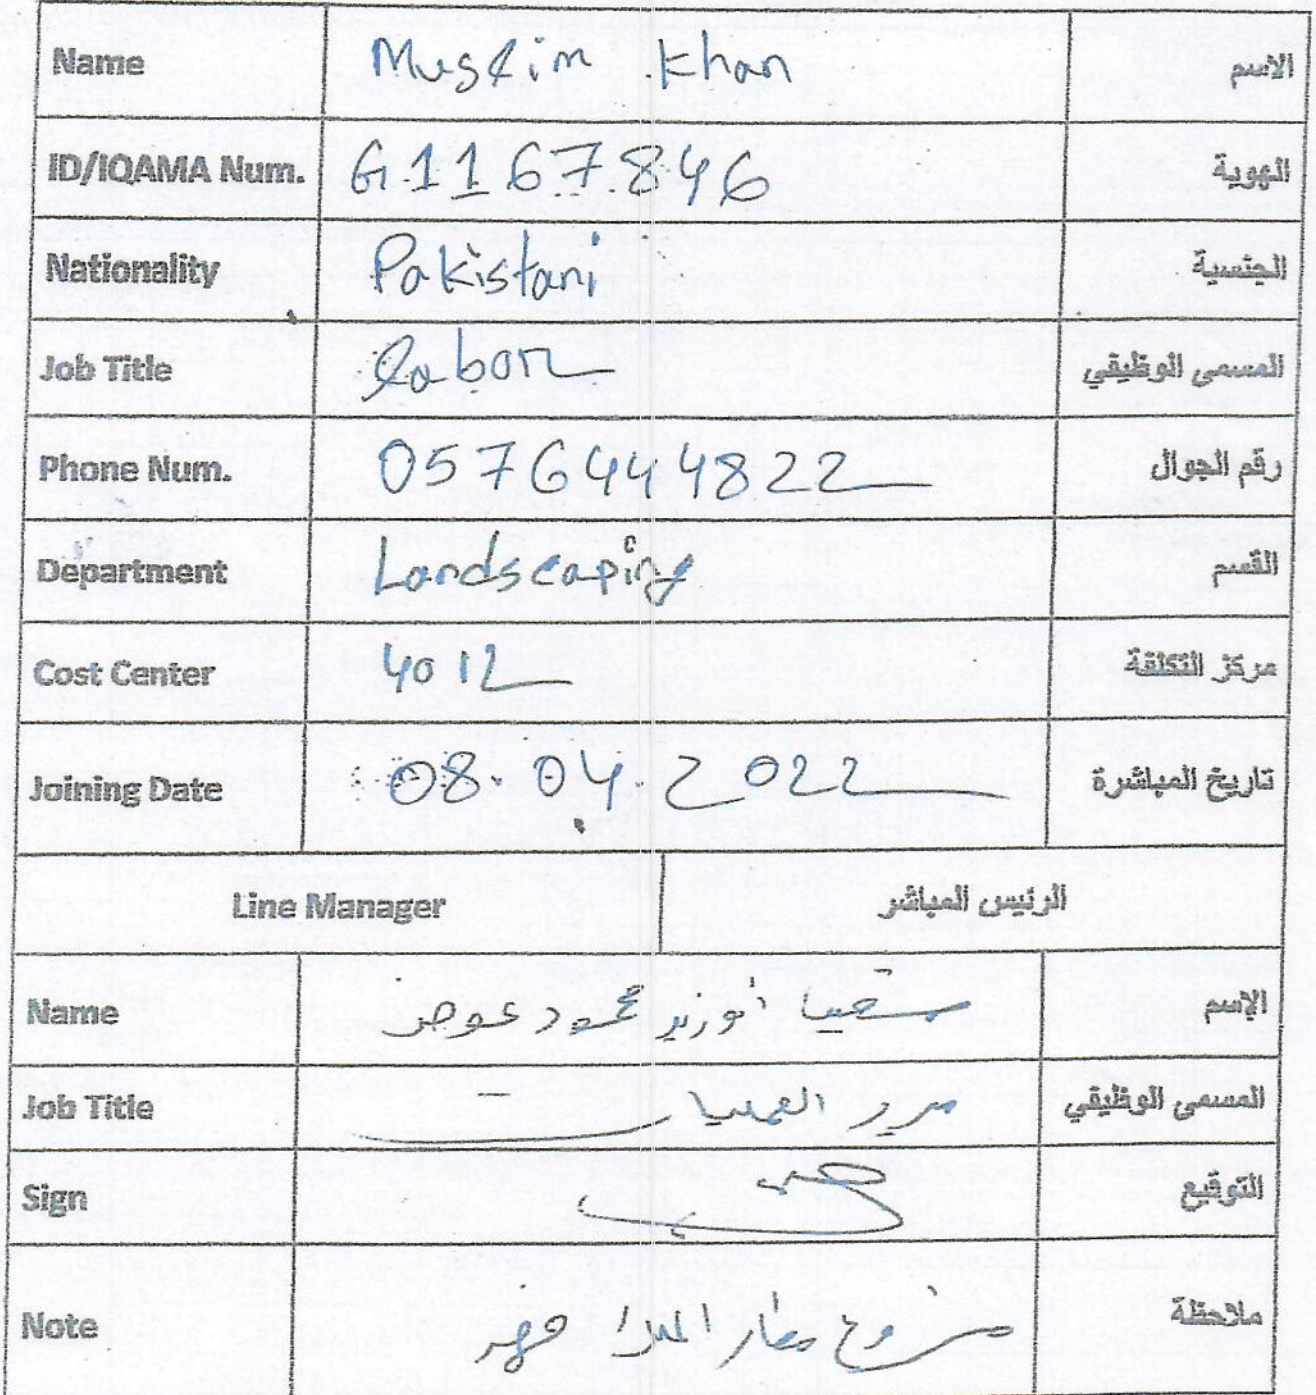 Name Muslim Khan الاسم
ID/IQAMA Num. G1167846 الهوية
Nationality Pakistani الجنسية
Job Title Labor المسمى الوظيفي
Phone Num. 0576444822 رقم الجوال
Department Landscaping القسم
Cost Center 4012 مركز التكلفة
Joining Date 08.04.2022 تاريخ المباشرة
Line Manager الرئيس المباشر
Name محمود عوض الإسم
Job Title مدير العمليات المسمى الوظيفي
Sign التوقيع
Note مشروع مطار الملك فهد ملاحظة